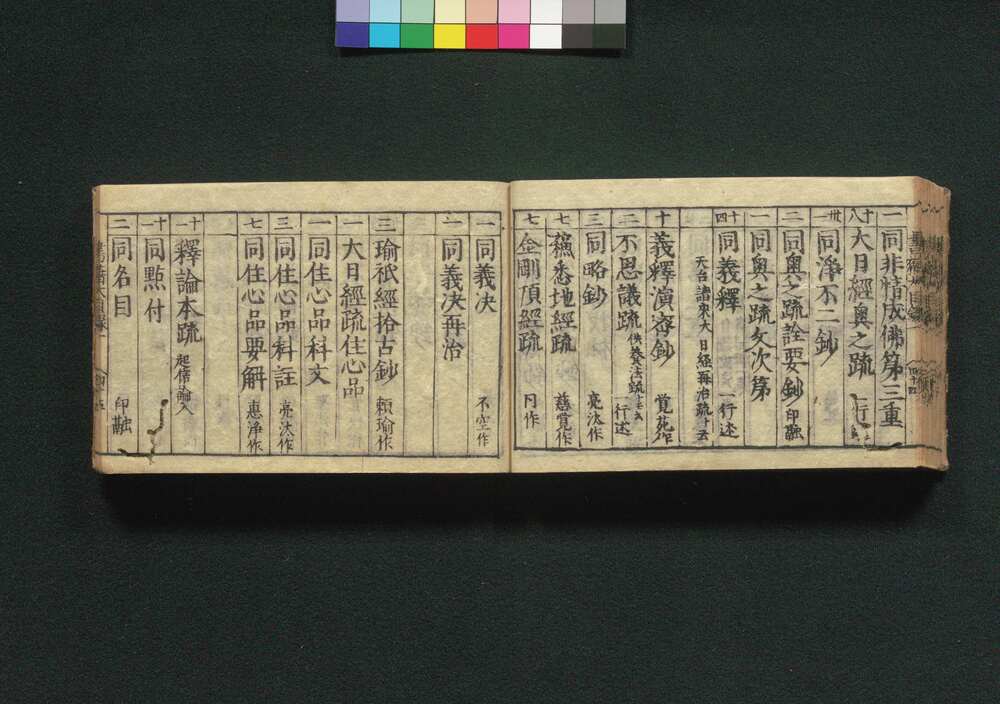 一 同非情成佛第三重
十八 大日經奧之疏 一行
卅一 同淨不二鈔
二 同奧之疏詮要鈔 印融
一 同奧之疏文次第
十四 同義釋 一行述
天台諸衆大日経再治疏ト云
十 義釋演密鈔 覚苑作
二 不思議疏 供養法疏ト云 一行述
三 同略鈔 亮汰作
七 蘓悉地經疏 慈覚作
七 金剛頂經疏 同作
一 同義决 不空作
一 同義决再治
三 瑜祇經拾古鈔 頼瑜作
一 大日經疏住心品
一 同住心品科文
三 同住心品科註 亮汰作
七 同住心品要解 惠浄作
十一 釋論本疏 起信論入
十一 同㸃付
二 同名目 印融